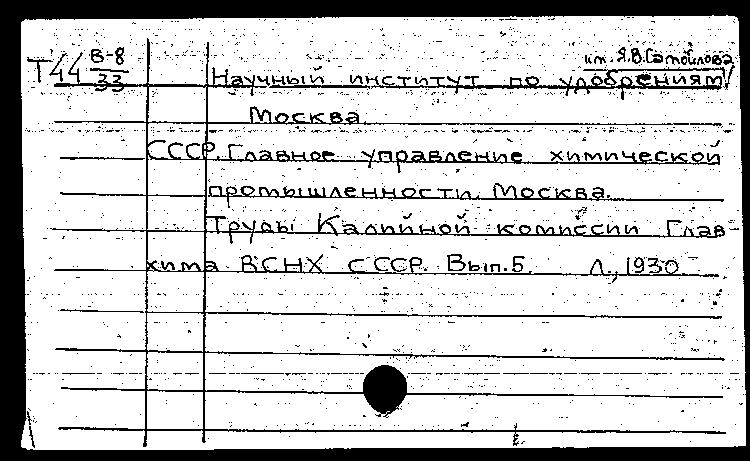 им. Я.В.Самойлова
Т44 В-8
33
Научный институт по удобрениям
Москва
СССР. Главное управление химической
промышленности. Москва.
Труды Калийной комиссии Глав-
хима ВСНХ СССР. Вып.5. Л., 1930